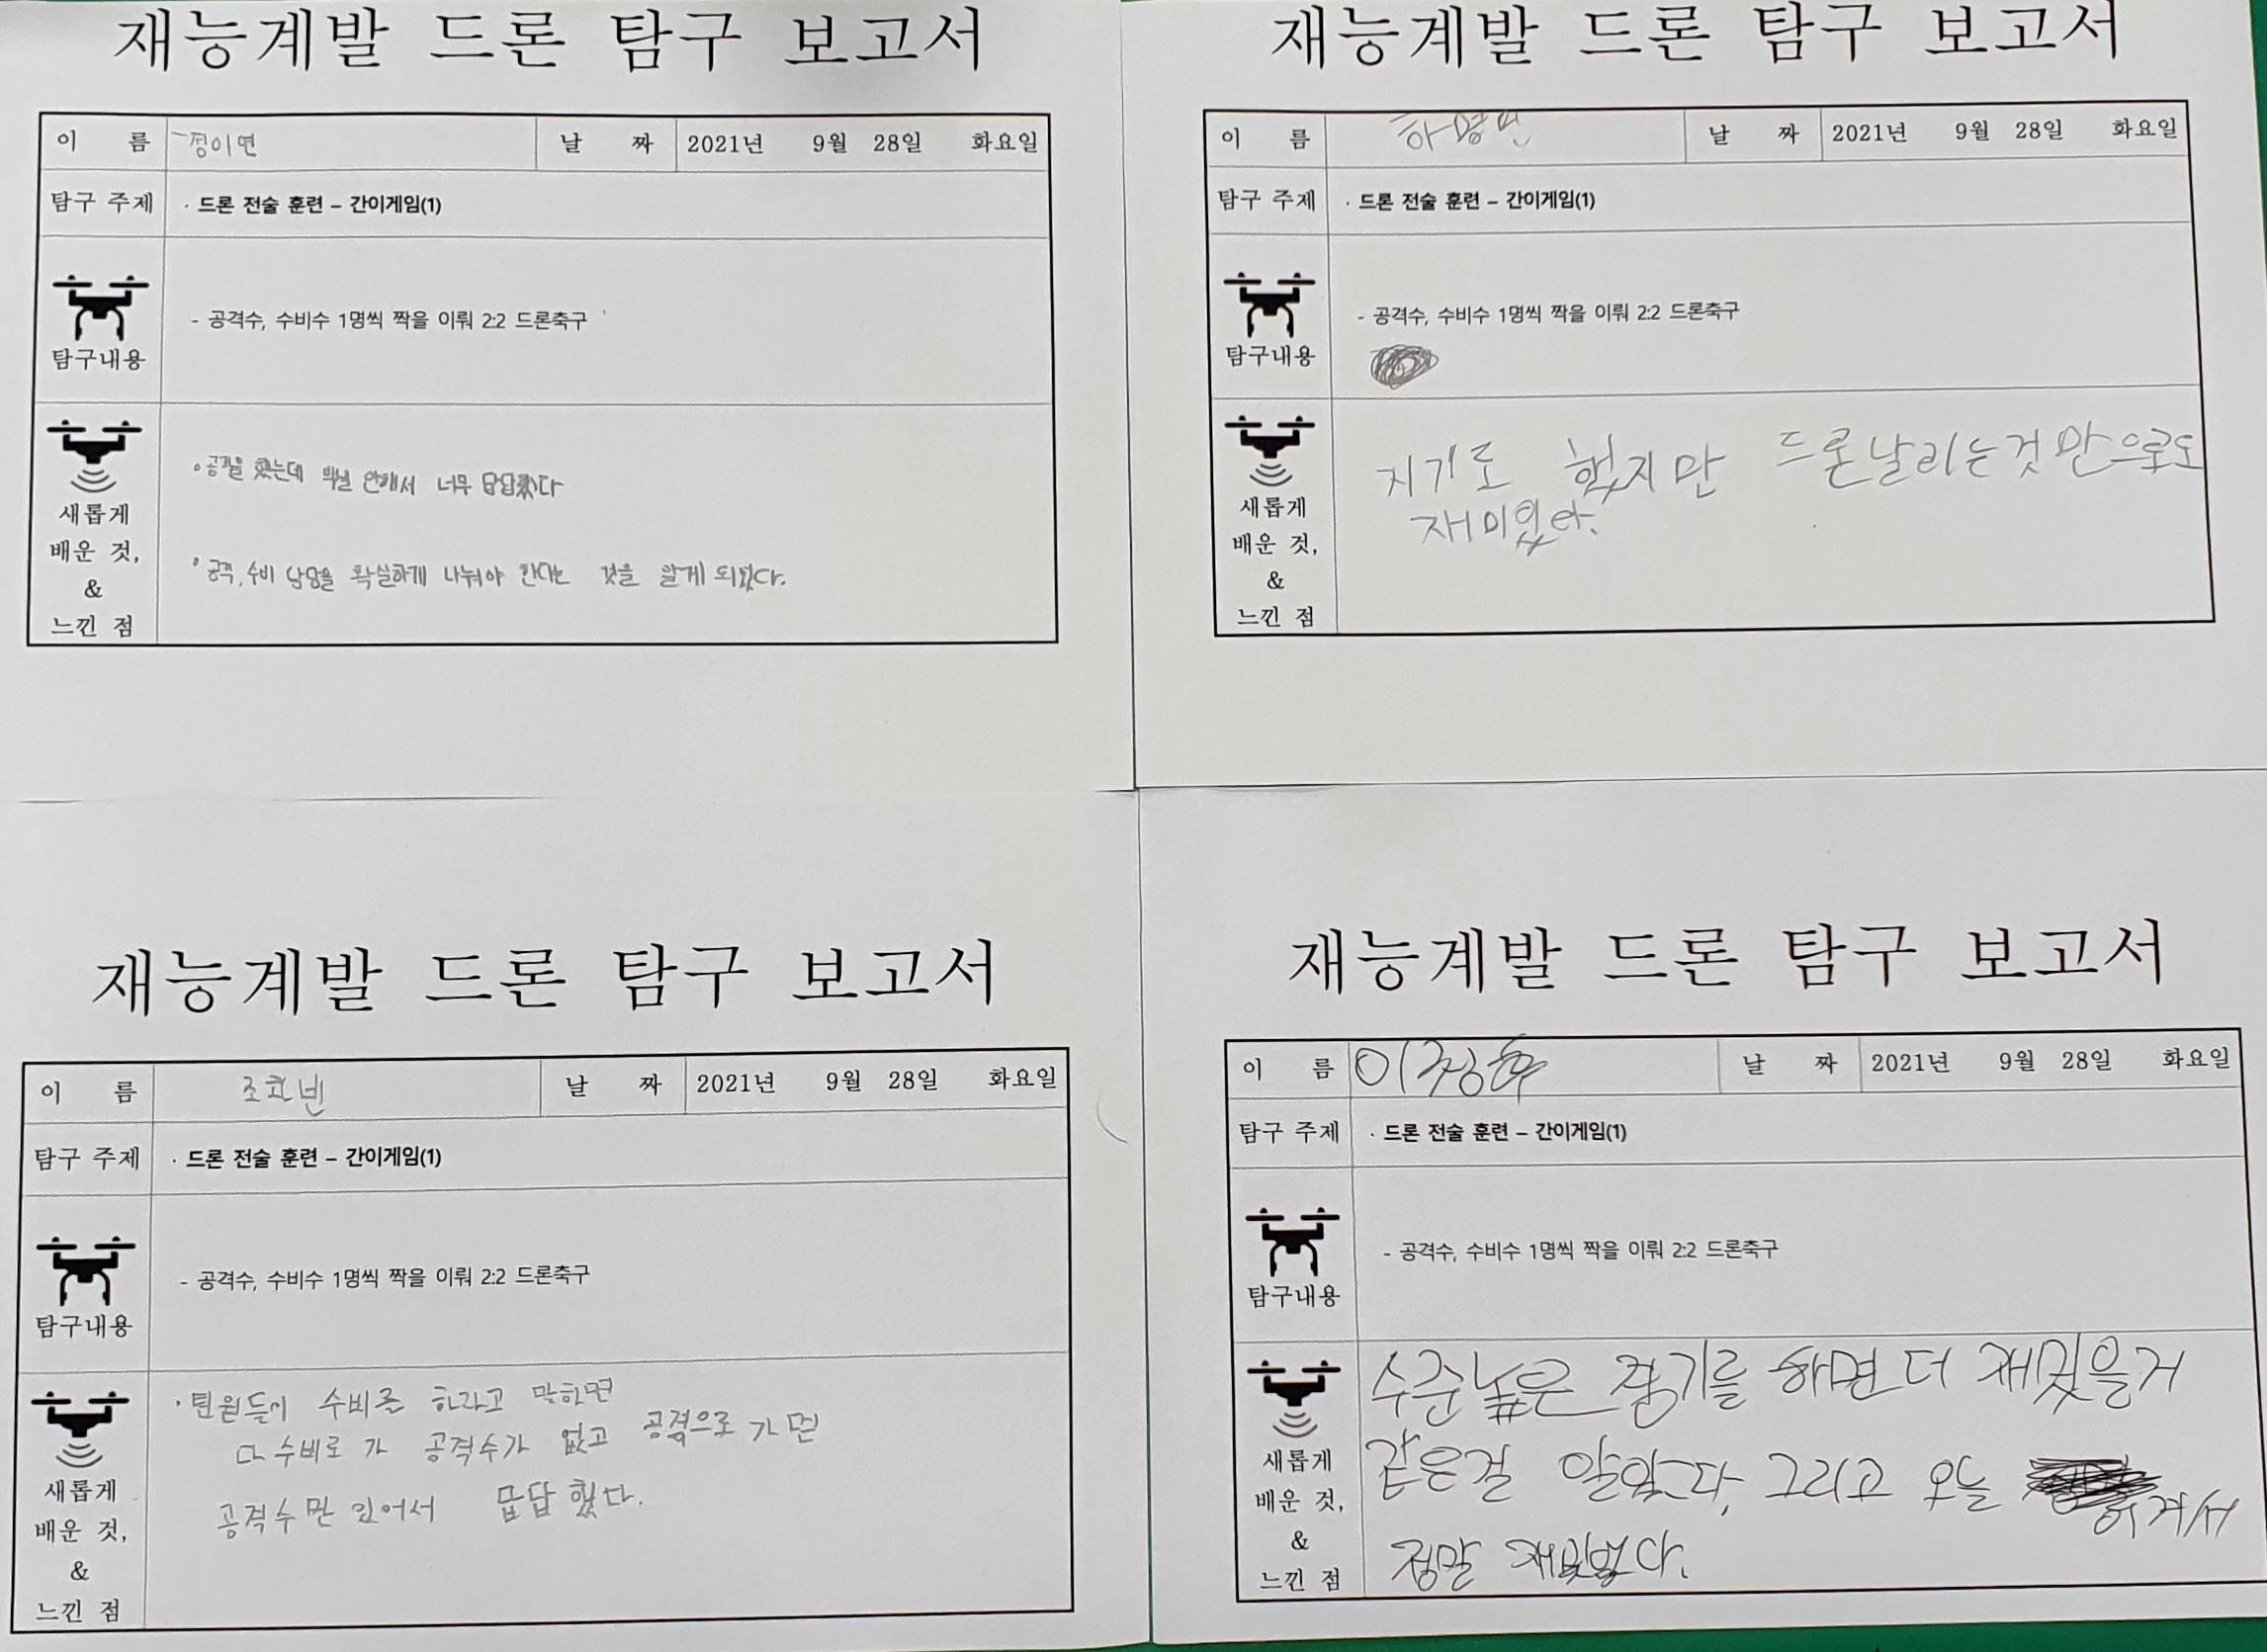 재능계발 드론 탐구 보고서
이 름 정이연 날 짜 2021년 9월 28일 화요일
탐구 주제 · 드론 전술 훈련 – 간이게임(1)
탐구내용 - 공격수, 수비수 1명씩 짝을 이뤄 2:2 드론축구
새롭게
배운 것,
&
느낀 점
공격을 했는데 너무 답답했다
공격, 수비 담당을 확실하게 나눠야 한다는 것을 알게 되었다.
재능계발 드론 탐구 보고서
이 름 날 짜 2021년 9월 28일 화요일
탐구 주제 · 드론 전술 훈련 – 간이게임(1)
탐구내용 - 공격수, 수비수 1명씩 짝을 이뤄 2:2 드론축구
새롭게
배운 것,
&
느낀 점
지기도 했지만 드론날리는것만으로도
재미있었다.
재능계발 드론 탐구 보고서
이 름 날 짜 2021년 9월 28일 화요일
탐구 주제 · 드론 전술 훈련 – 간이게임(1)
탐구내용 - 공격수, 수비수 1명씩 짝을 이뤄 2:2 드론축구
새롭게
배운 것,
&
느낀 점
· 팀원들이 수비를 하라고 말하면
다 수비로 가 공격수가 없고 공격으로 가면
공격수만 있어서 답답했다.
재능계발 드론 탐구 보고서
이 름 날 짜 2021년 9월 28일 화요일
탐구 주제 · 드론 전술 훈련 – 간이게임(1)
탐구내용 - 공격수, 수비수 1명씩 짝을 이뤄 2:2 드론축구
새롭게
배운 것,
&
느낀 점
수준높은 경기를 하면 더 재밌을거
같은걸 알았다, 그리고 오늘 이겨서
정말 재밌었다.